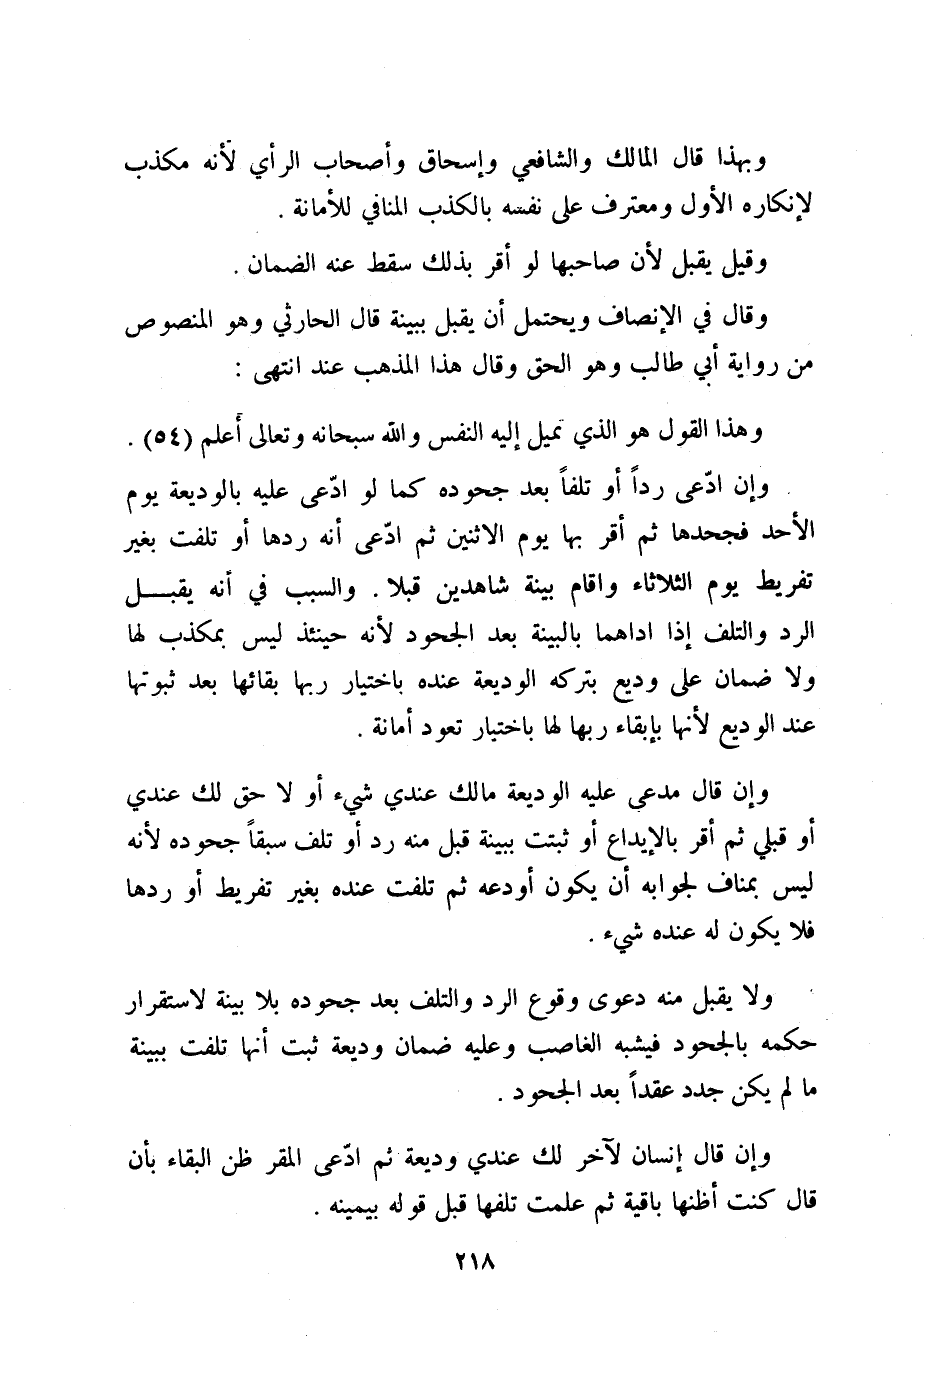 وبهذا قال المالك والشافعي وإسحاق وأصحاب الرأي لأنه مكذب
لإنكاره الأول ومعترف على نفسه بالكذب المنافي للأمانة .
وقيل يقبل لأن صاحبها لو أقر بذلك سقط عنه الضمان .
وقال في الإنصاف ويحتمل أن يقبل ببينة قال الحارثي وهو المنصوص
من رواية أبي طالب وهو الحق وقال هذا المذهب عند انتهى :
وهذا القول هو الذي تميل إليه النفس والله سبحانه وتعالى أعلم (٥٤) .
وإن ادّعى رداً أو تلفاً بعد جحوده كما لو ادّعى عليه بالوديعة يوم
الأحد فجحدها ثم أقر بها يوم الاثنين ثم ادّعى أنه ردها أو تلفت بغير
تفريط يوم الثلاثاء واقام بينة شاهدين قبلا . والسبب في أنه يقبــل
الرد والتلف إذا اداهما بالبينة بعد الجحود لأنه حينئذ ليس بمكذب لها
ولا ضمان على وديع بتركه الوديعة عنده باختيار ربها بقائها بعد ثبوتها
عند الوديع لأنها بإبقاء ربها لها باختيار تعود أمانة .
وإن قال مدعى عليه الوديعة مالك عندي شيء أو لا حق لك عندي
أو قبلي ثم أقر بالإيداع أو ثبتت ببينة قبل منه رد أو تلف سبقاً جحوده لأنه
ليس بمناف لجوابه أن يكون أودعه ثم تلفت عنده بغير تفريط أو ردها
فلا يكون له عنده شيء .
ولا يقبل منه دعوى وقوع الرد والتلف بعد جحوده بلا بينة لاستقرار
حكمه بالجحود فيشبه الغاصب وعليه ضمان وديعة ثبت أنها تلفت ببينة
ما لم يكن جدد عقداً بعد الجحود .
وإن قال إنسان لآخر لك عندي وديعة ثم ادّعى المقر ظن البقاء بأن
قال كنت أظنها باقية ثم علمت تلفها قبل قوله بيمينه .
٢١٨